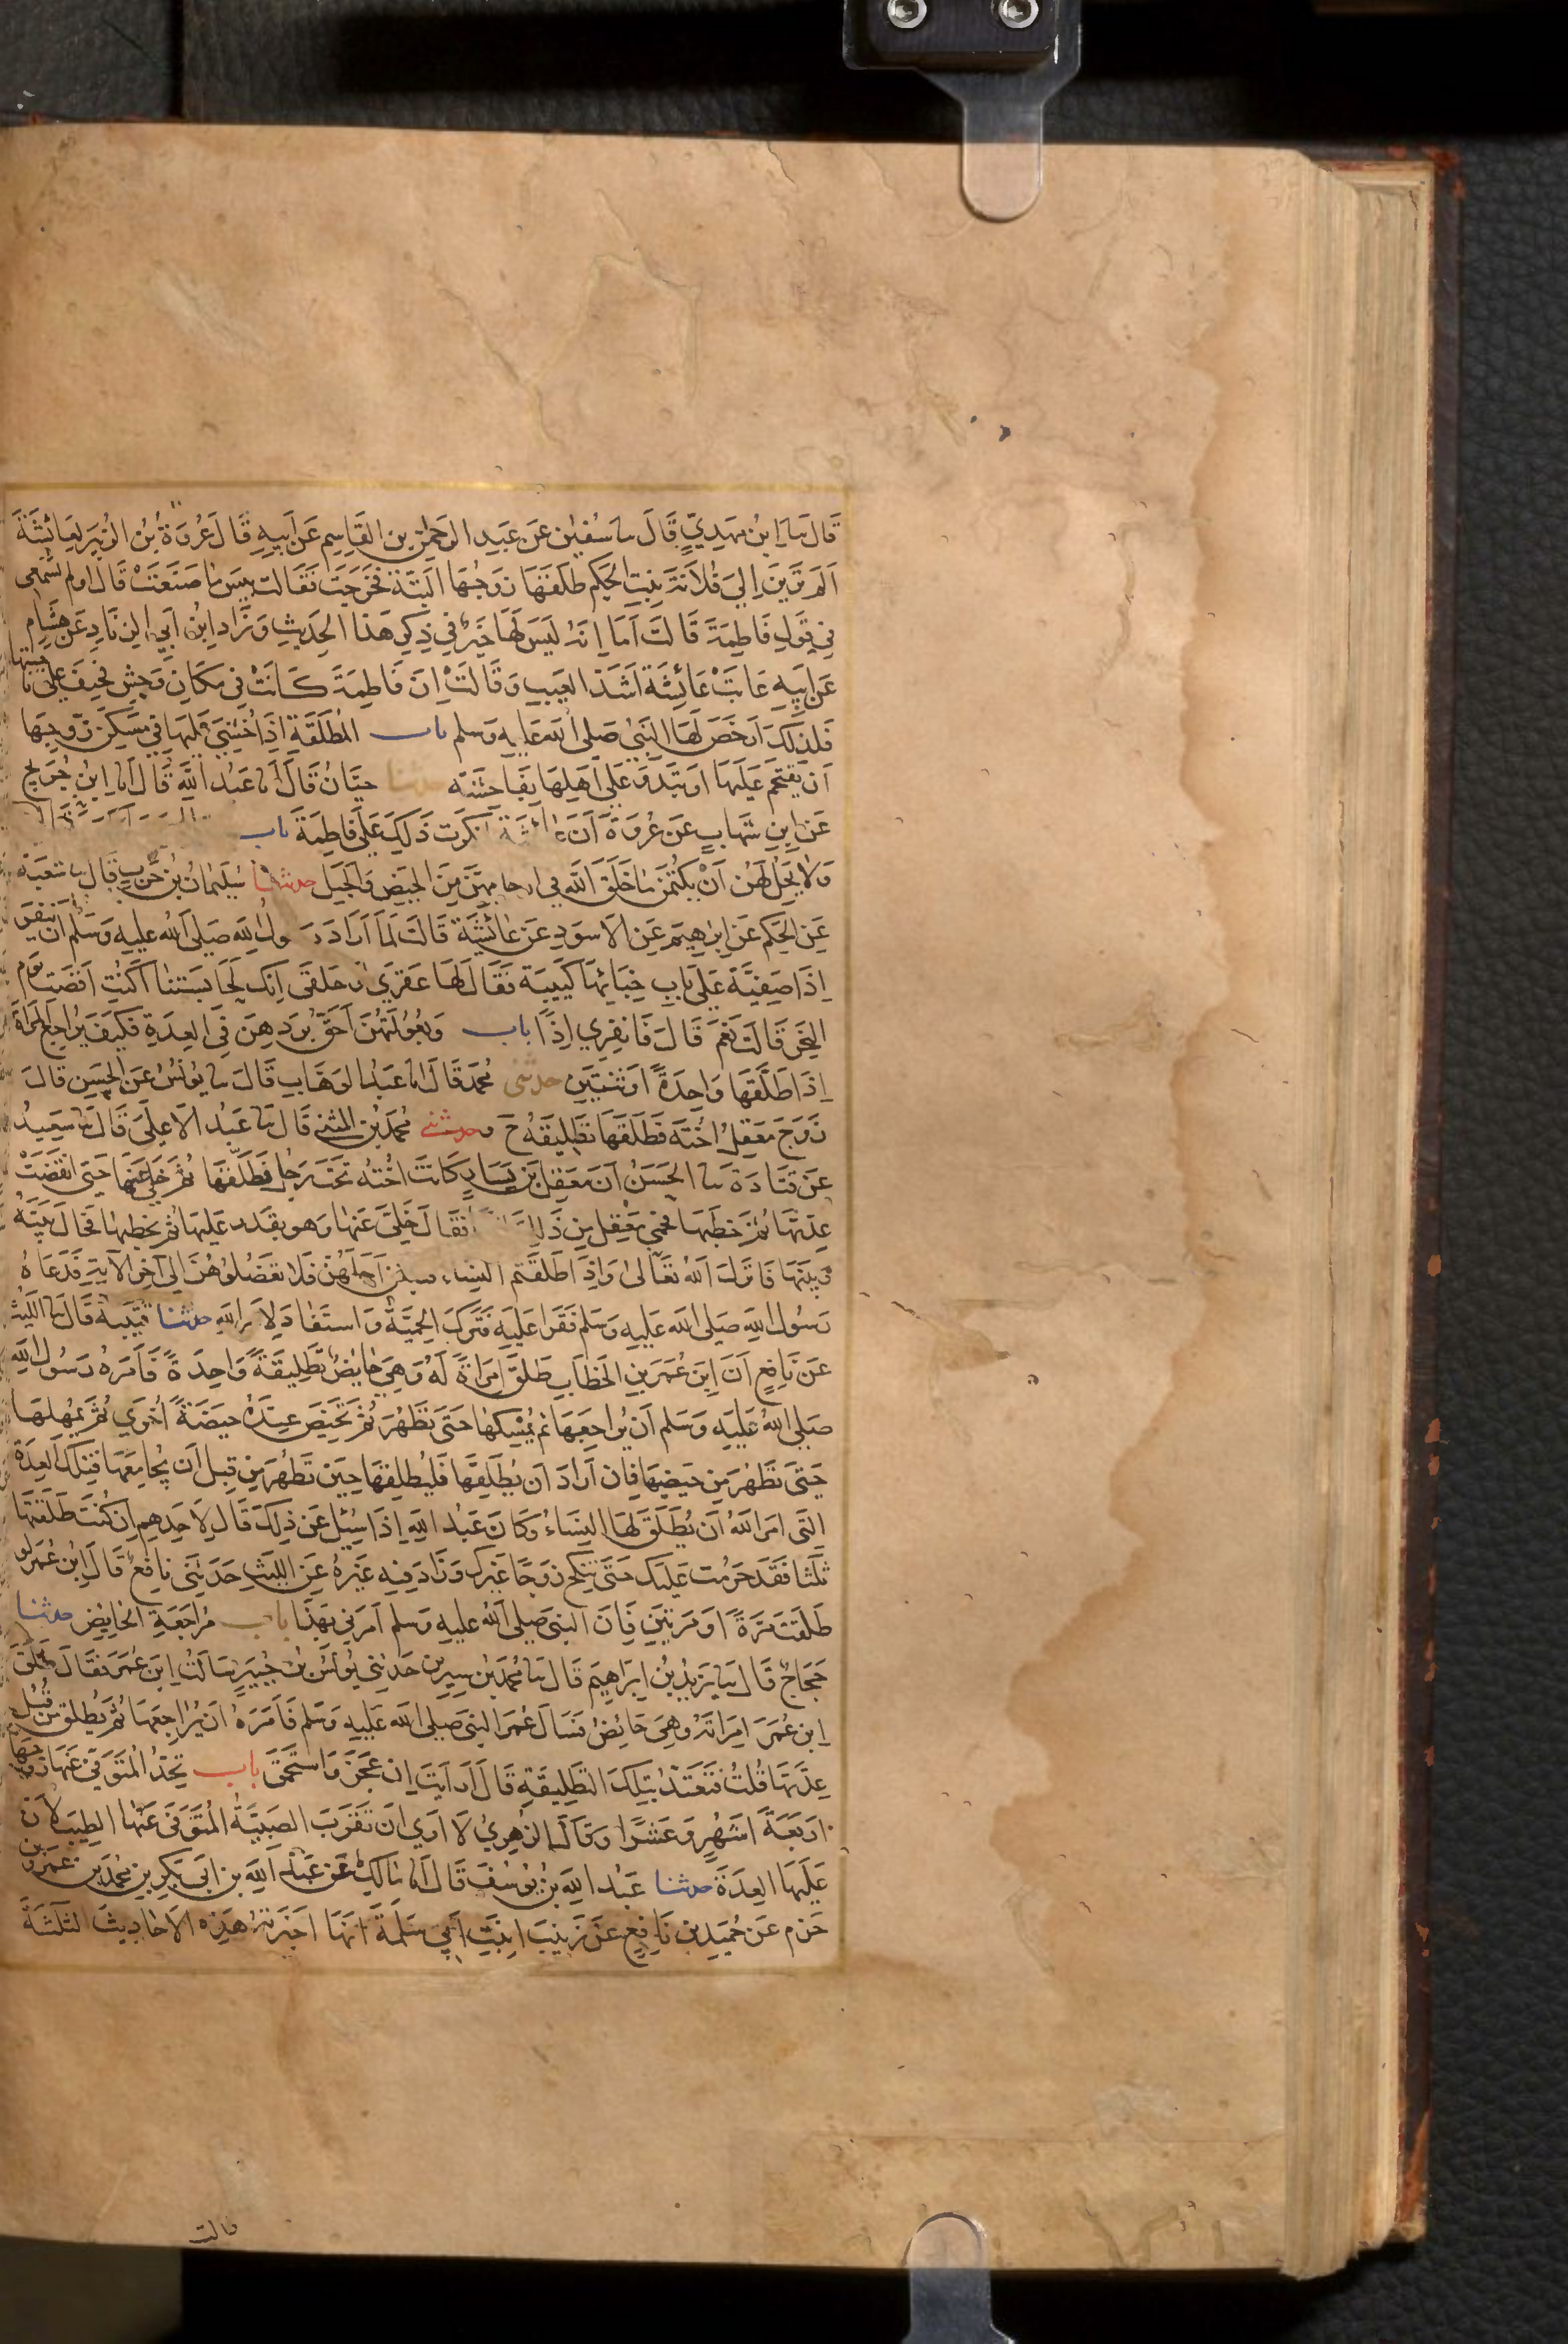 قَالَ نَا ابْنُ مَهْدِيٍّ قَالَ نا سُفْيٰن عَن عَبدِ الرَّحْمٰنِ بنِ القَاسِمِ عَن أَبِيهِ قَالَ عُرْوَةُ بْنُ الزُّبَيرِ لِعَائِشَةَ
أَلَم تَرَينَ إلِيَ فُلَانَةَ بِنتِ الحَكَمِ طَلَّقَهَا زَوجُهَا البَتَّةَ فَخَرَجَت فَقَالَت بِيسَ مَا صَنَعَتْ قَالَ اولم تسمعي
فِي قَولِ فَاطِمَةَ قَالَتْ أَمَا اِنَّهُ لَيسَ لَهَا خَيرٌ فِي ذِكرِ هَذَا الحَدِيثِ وَزَادَ ابنُ أَبِي الزِنَادِ عَن هِشَامٍ
عَن أَبِيهِ عَابَتْ عَائِشَةُ اَشَدَّ العَيبِ وَقَالَتْ اِنَّ فَاطِمَةَ كَانَتْ فِي مَكَانٍ وَحِشٍ فَخِيفَ عَلَى نا حيتها
فَلِذٰلِكَ اَرخَصَ لَهَا النَبِيُّ صَلى اللّٰهُ عَلَيهِ وَسَلم باب المُطَلَّقَةِ اِذَا خُشِيَ عَلَيهَا فِي مَسكَنِ زَوجِهَا
اَن يُقتَحَمَ عَلَيهَا اَو تَبذُوَ عَلَى اَهلِهَا بِفَاحِشَة حدثنا حِبَّانُ قَالَ أنا عَبدُ اللّٰهِ قَالَ أنا ابنُ جُرَيجٍ
عَن ابنِ شِهَابٍ عَن عُرْوَةَ اَنَّ عائشَةَ انكَرَت ذٰلِكَ عَلَى فَاطِمَةَ باب
وَلَا يَحِلُّ لَهُنَّ اَنْ يَكْتُمنَ مَا خَلَقَ اللّٰهُ فِي ارحامِهِنَّ مِنَ الحَيضِ وَالحَبَل حدثنا سُلَيمَانُ بنُ حَربٍ قَالَ نا شعبَة
عَنِ الحَكَمِ عَن اِبرٰهِيمَ عَنِ الاَسوَدِ عَن عَائِشَةَ قَالَت لَمَّا اَرَادَ رَسولُ اللّٰهِ صَلى اللّٰهُ عليهِ وَسَلَّم ان ينفِر
اِذَا صَفِيَّةُ عَلَى بَابِ خِبَائِهَا كَئِيبَة فَقَالَ لَهَا عَقرَي او حَلقَى اِنَّكِ لَحَابِسَتنَا اَكُنتِ اَفَضتِ يَومَ
النَّحرِ قَالَت نَعَم قَالَ فَانفِرِي اِذًا باب وَبُعُولَتُهُنَّ اَحَقُّ بِرَدِّهِنَّ فِي العِدَةِ وكَيفَ يُراجع المراةَ
اِذَا طَلَّقَهَا وَاحِدَةً اَو ثنتَينِ حدثني مُحَمَّد قَالَ انا عَبدُ الوَهَّابِ قَالَ نا يُونُسُ عَنِ الحَسَنِ قَالَ
زَوَّجَ مَعقِلٌ اُختَهُ فَطَلَّقَهَا تَطلِيقَة ح وحدثني مُحَمَّدُ بن المثنى قَالَ نا عَبدُ الاَعلَى قَالَ نا سَعِيدٌ
عَن قَتَادَةَ نا الحَسَنُ اَنَّ مَعقِلَ بنَ يَسَارٍ كَانَت اختُهُ تَحتَ رَجُلٍ فَطَلَّقَهَا ثُمَّ خَلَّى عَنهَا حَتَى انقَضَتْ
عِدَّتُهَا ثُمَّ خَطَبَهَا فَحَمِيَ مَعقِلٌ مِن ذٰلِك انفا فَقَالَ خَلَّى عَنهَا وَهو يقدِر عليهَا ثُمَّ يخطبهَا فَحَالَ بَينَهُ
وَبَينَهَا فَانزَلَ اللّٰهُ تَعَالىٰ وَاِذَا طَلَّقتُم النِّسَاءَ فبلغن اَجَلَهُنَّ فَلا تَعضُلُوهُنَّ اِلى آخِرِ الآيَةِ فَدَعَاهُ
رَسُولُ اللّٰهِ صَلى اللّٰهُ عَلَيهِ وَسَلم فَقَرا عَلَيهِ فَتَرَكَ الحَمِيَّةَ وَاستَقَادَ لِاَمرِ اللّٰهِ حدثنا قتَيبَة قَالَ نا الليث
عَن نَافِعٍ اَنَّ اِبنَ عُمَرَ بنِ الخَطَّابِ طَلَّقَ اِمرَاةً لَهُ وَهِيَ حَايِضٌ تَطلِيقَةً وَاحِدَةً فَاَمَرَهُ رَسُولُ اللّٰهِ
صَلَى اللّٰهُ عَلَيهِ وَسَلم اَن يُراجِعَهَا ثم يُمْسِكهَا حَتَى تَطْهُرَ ثُمَّ تَحِيضَ عِندَهُ حَيضَةً اُخرَي ثُمَّ يُمهِلهَا
حَتَى تَطْهُرَ مِن حَيضِهَا فَاِن اَرَادَ اَن يُطَلِّقَهَا فَليُطَلِّقهَا حِينَ تَطْهُرَ مِن قَبلِ اَن يُجَامِعَهَا فَتِلكَ العِدَةُ
الَّتِي اَمَرَ اللّٰهُ اَن يُطَلَّقَ لَهَا النِّسَاءُ وَكَانَ عَبدُ اللّٰهِ اِذَا سُئِلَ عَن ذٰلِكَ قَالَ لِاَحَدِهِم اِن كُنتَ طَلَّقتَهَا
ثَلٰثًا فَقَد حَرُمَت عَلَيكَ حَتَى تَنكِحَ زَوجًا غَيرَكَ وَزَادَ فِيهِ غَيرُهُ عَنِ اللَّيثِ حَدَثَنِي نَافِعٌ قَالَ ابنُ عُمَرَ لو
طَلَّقتَ مَرَّةً اَو مَرَّتَينِ فَاِنَّ النَبِيَّ صَلى اللّٰهُ عليهِ وسلم اَمَرَنِي بِهَذَا باب مُرَاجَعَةِ الحَايِض حدثنا
حَجَّاجٌ قَالَ نَا يَزِيدُ بنُ اِبرَاهِيمَ قَالَ نا مُحَمَدُ بنُ سِيرِين حَدثنِي يُونُسُ بنُ جُبَيرٍ سَالتُ ابنَ عُمَرَ فقَالَ طَلَّقَ
اِبنُ عُمَرَ امرَاتَهُ وَهِيَ حَائِضٌ فَسَالَ عُمَرُ النَبيَ صَلى اللّٰه عَلَيهِ وَسَلم فَاَمَرَهُ اَن يُراجِعَهَا ثُمَّ يُطَلق من قُبُل
عِدَّتِهَا قُلتُ فَتَعتَدُّ بِتِلكَ التَّطلِيقَةِ قَالَ اَرَاَيتَ اِن عَجَزَ وَاستَحمَقَ باب تحِدُّ المُتَوَفَّى عَنهَا زوجها
اَربَعَةَ اَشهُرٍ وَعَشرًا وَقَالَ الزُّهرِيُّ لَا اَرَي اَن تَقرَبَ الصَبِيَّةُ المُتَوَفَّى عَنهَا الطِّيبَ لِاَنَّ
عَلَيهَا العِدَةَ حدثنا عَبدُ اللّٰهِ بنُ يُوسُفَ قَالَ اَنا مَالِكٌ عَن عَبدِ اللّٰهِ بنِ اَبِي بَكرِ بنِ مُحَمَّدِ بنِ عَمرِو بن
حَزم عَن حُمَيدِ بنِ نَافِعٍ عَن زَينَبَ ابنَتِ اَبِي سَلَمَةَ انَّهَا اَخبَرَتهُ هٰذِهِ الاَحَادِيثَ الثَّلٰثَةَ
قالت